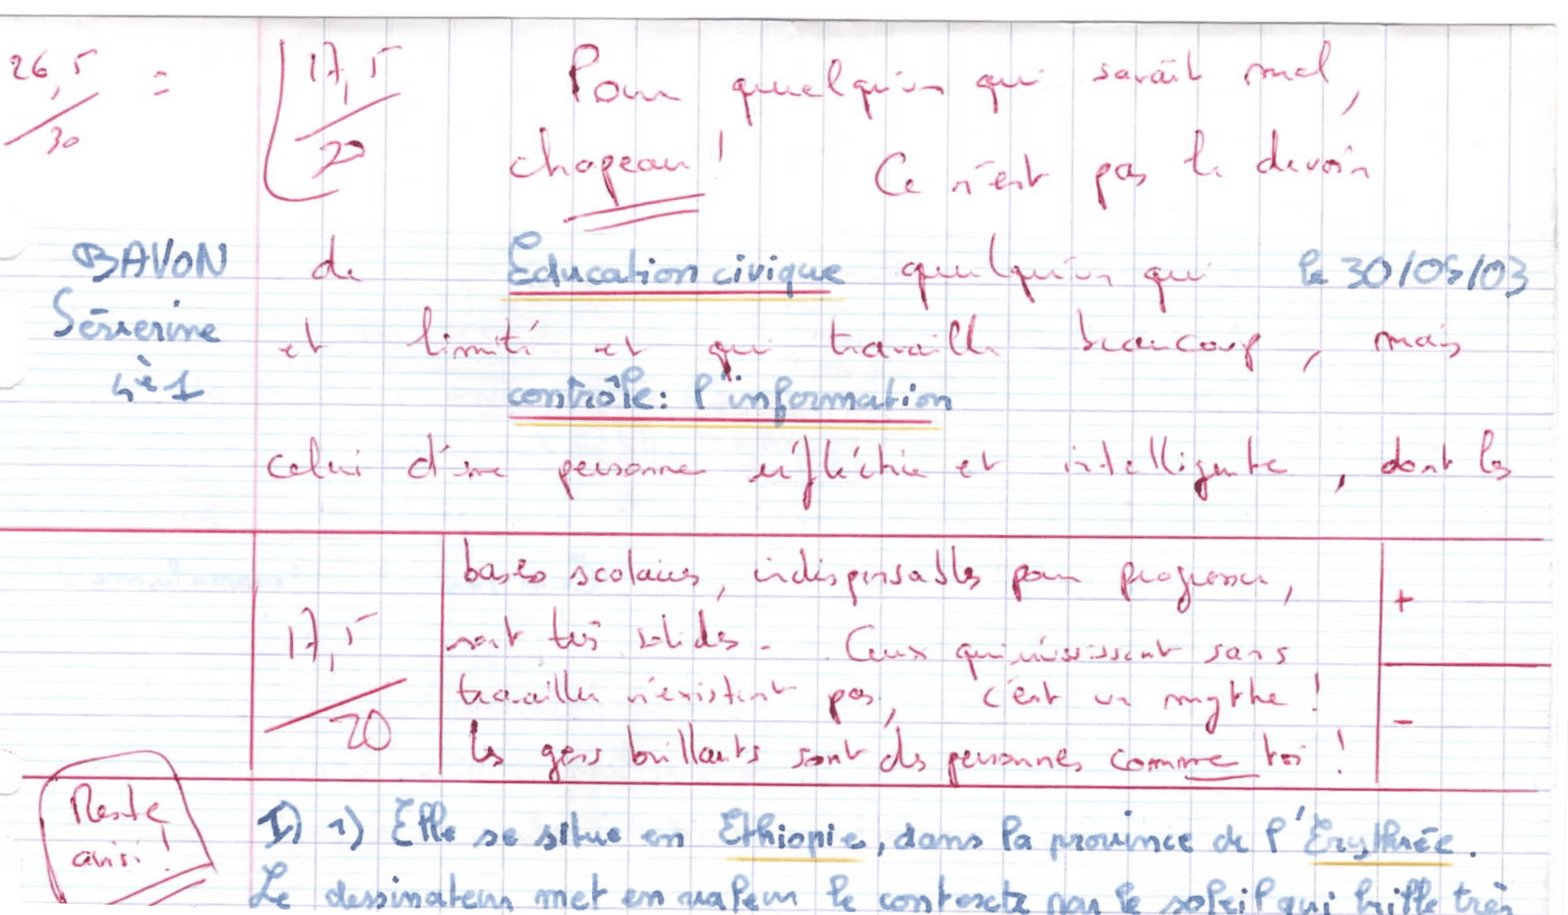 26,5/30 = 17,5/20 Pour quelqu'un qui savait mal,
chapeau ! Ce n'est pas le devoir
BAVON de Education civique quelqu'un qui le 30/05/03
Séverine est limité et qui travaille beaucoup, mais
4è1 contrôle: l'information
celui d'une personne réfléchie et intelligente, dont les
bases scolaires, indispensables pour progresser, +
17,5/20 sont très solides. Ceux qui réussissent sans
travailler n'existent pas, c'est un mythe !
les gens brillants sont des personnes comme toi ! -
Reste ainsi !
I) 1) Elle se situe en Ethiopie, dans la province de l'Erythrée.
Le dessinateur met en valeur le contexte par le soleil qui brille très